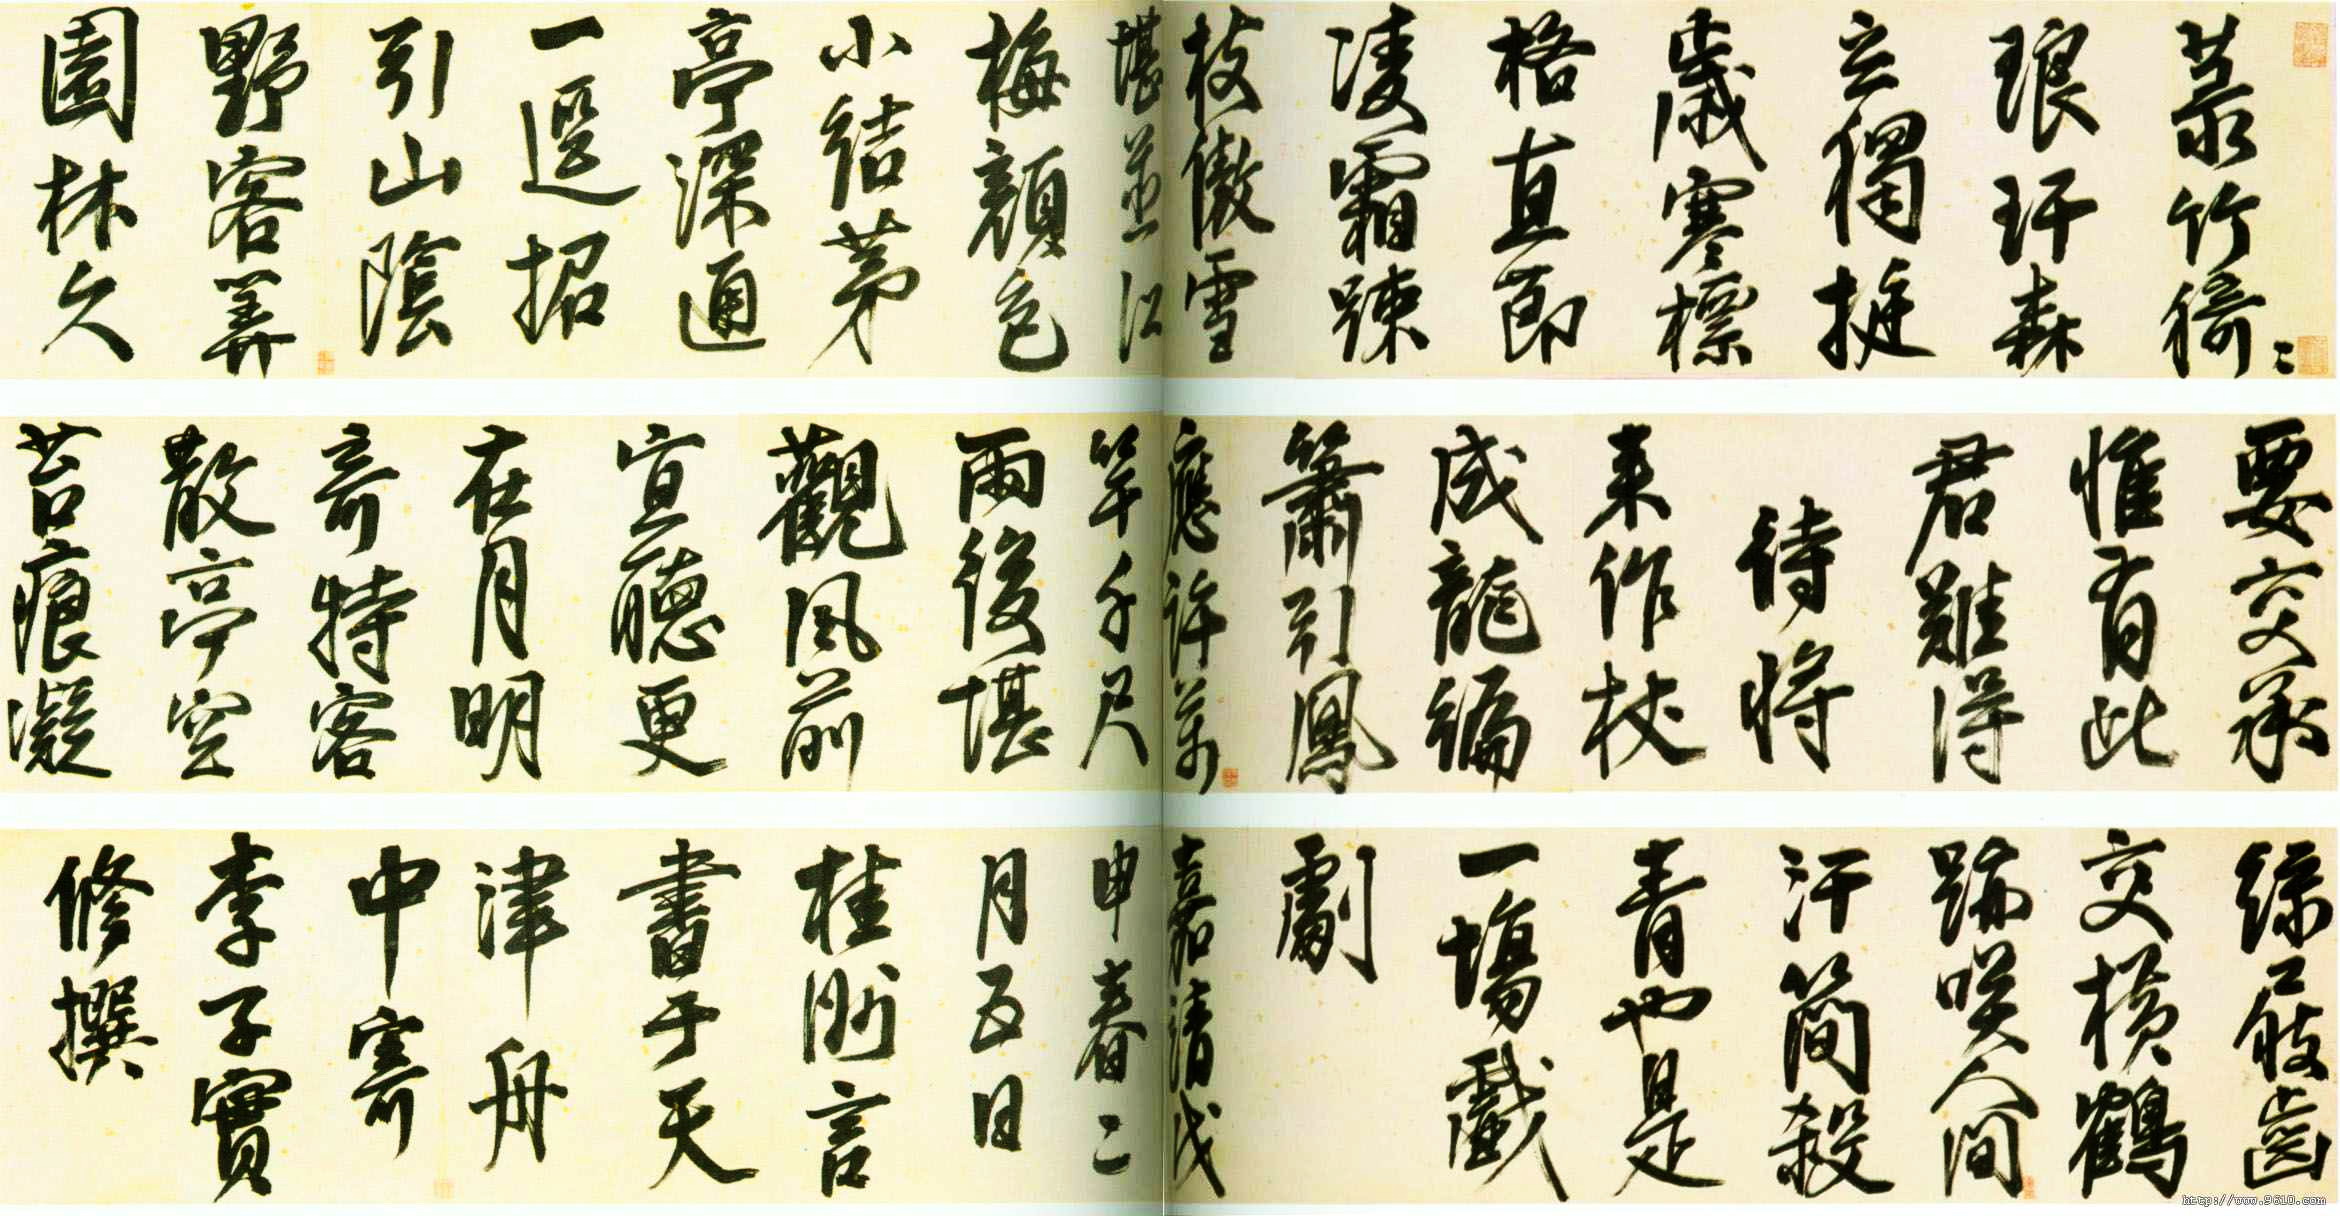 菉竹猗〻
琅玕森
立獨挺
歲寒標
格直節
凌霜踈
枝傲雪
堪並江
梅顏色
小結茅
亭深通
一逕招
引山陰
野客算
園林久
要交承
惟有此
君難得
待將
來作杖
成龍編
簫引鳳
應許萬
竿千尺
雨後堪
觀風前
宜聽更
在月明
奇特客
散亭空
苔痕凝
綠屐齒
交橫鶴
跡咲人間
汗簡殺
青也是
一場戲
劇
嘉靖戊
申春二
月五日
桂洲言
書于天
津舟
中寄
李子實
修撰
http://www.9610.com